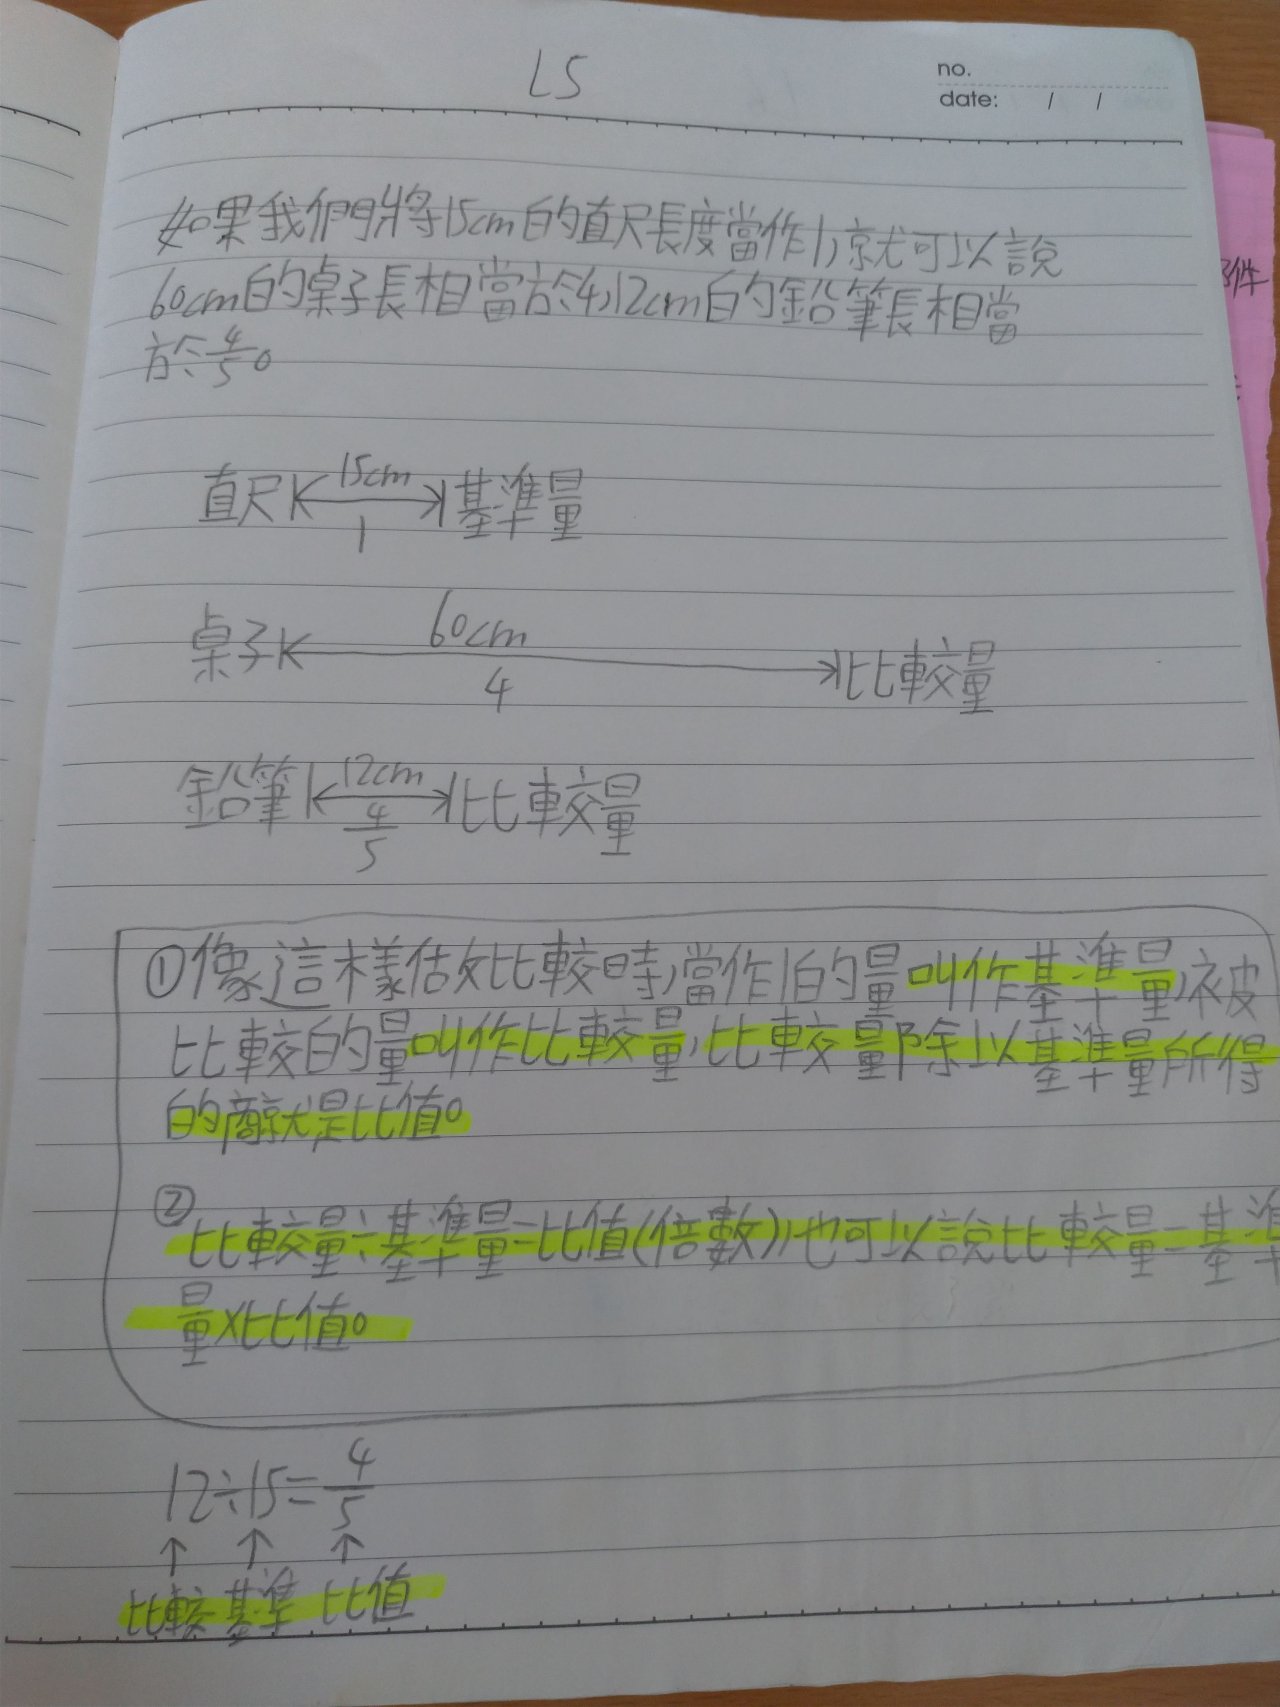 L5
no.
date: / /
如果我們將15cm的直尺長度當作1,就可以說
60cm的桌子長相當於4,12cm的鉛筆長相當
於4/5。
直尺 15cm 基準量
1
桌子 60cm 比較量
4
鉛筆 12cm 比較量
4/5
①像這樣做比較時,當作1的量叫作基準量,被
比較的量叫作比較量,比較量除以基準量所得
的商就是比值。
②比較量÷基準量=比值(倍數),也可以說比較量=基準
量×比值。
12÷15=4/5
↑ ↑ ↑
比較 基準 比值
件